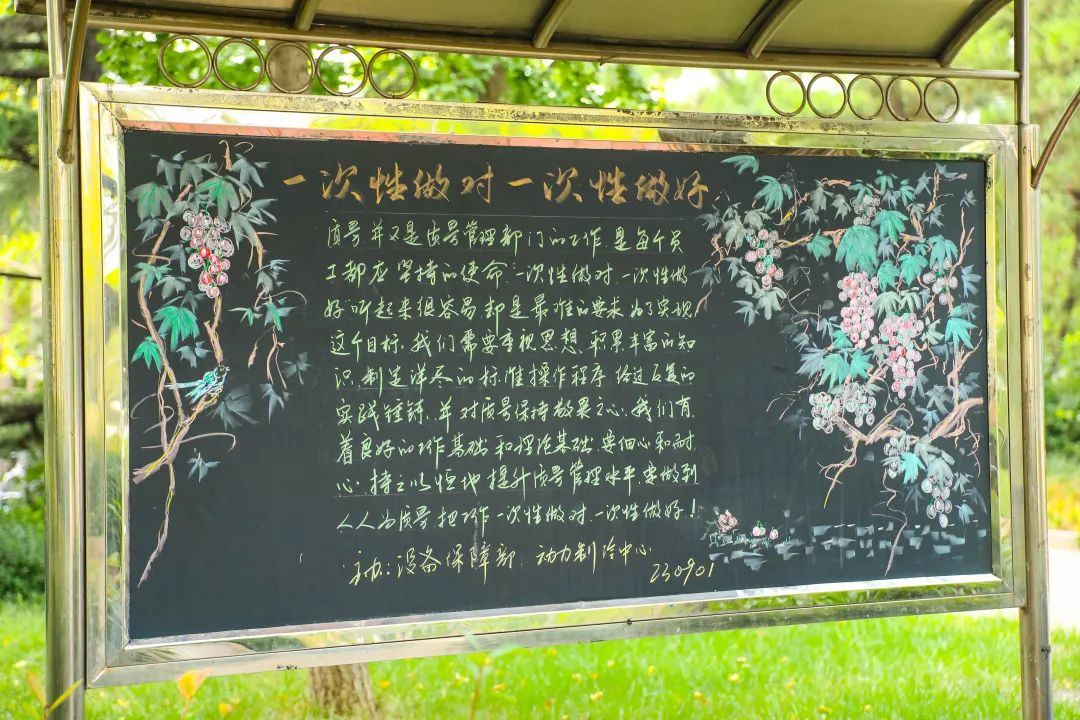 一次性做对一次性做好
质量并不是质量管理部门的工作,是每个员
工都应坚持的使命,一次性做对,一次性做
好,听起来很容易却是最难的要求,为了实现
这个目标,我们需要重视思想,积累丰富的知
识,制定详尽的标准操作程序,经过反复的
实践锤铸,并对质量保持敬畏之心,我们有
着良好的工作基础和理论基础,要细心和耐
心,持之以恒地提升质量管理水平,要做到
人人为质量把工作一次性做对,一次性做好!
主办:设备保障部、动力制冷中心
230901